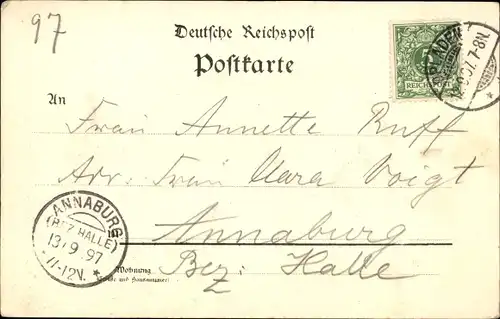 97
Deutsche Reichspost
Postkarte
An
Frau Annette Ruff
Adr: Frau Clara Voigt
Annaburg
Bez: Halle
Wohnung
(Straße und Hausnummer)
REICHSPOST
7-8N.
ANNABURG
(BEZ. HALLE)
13/9 97
11-12V.